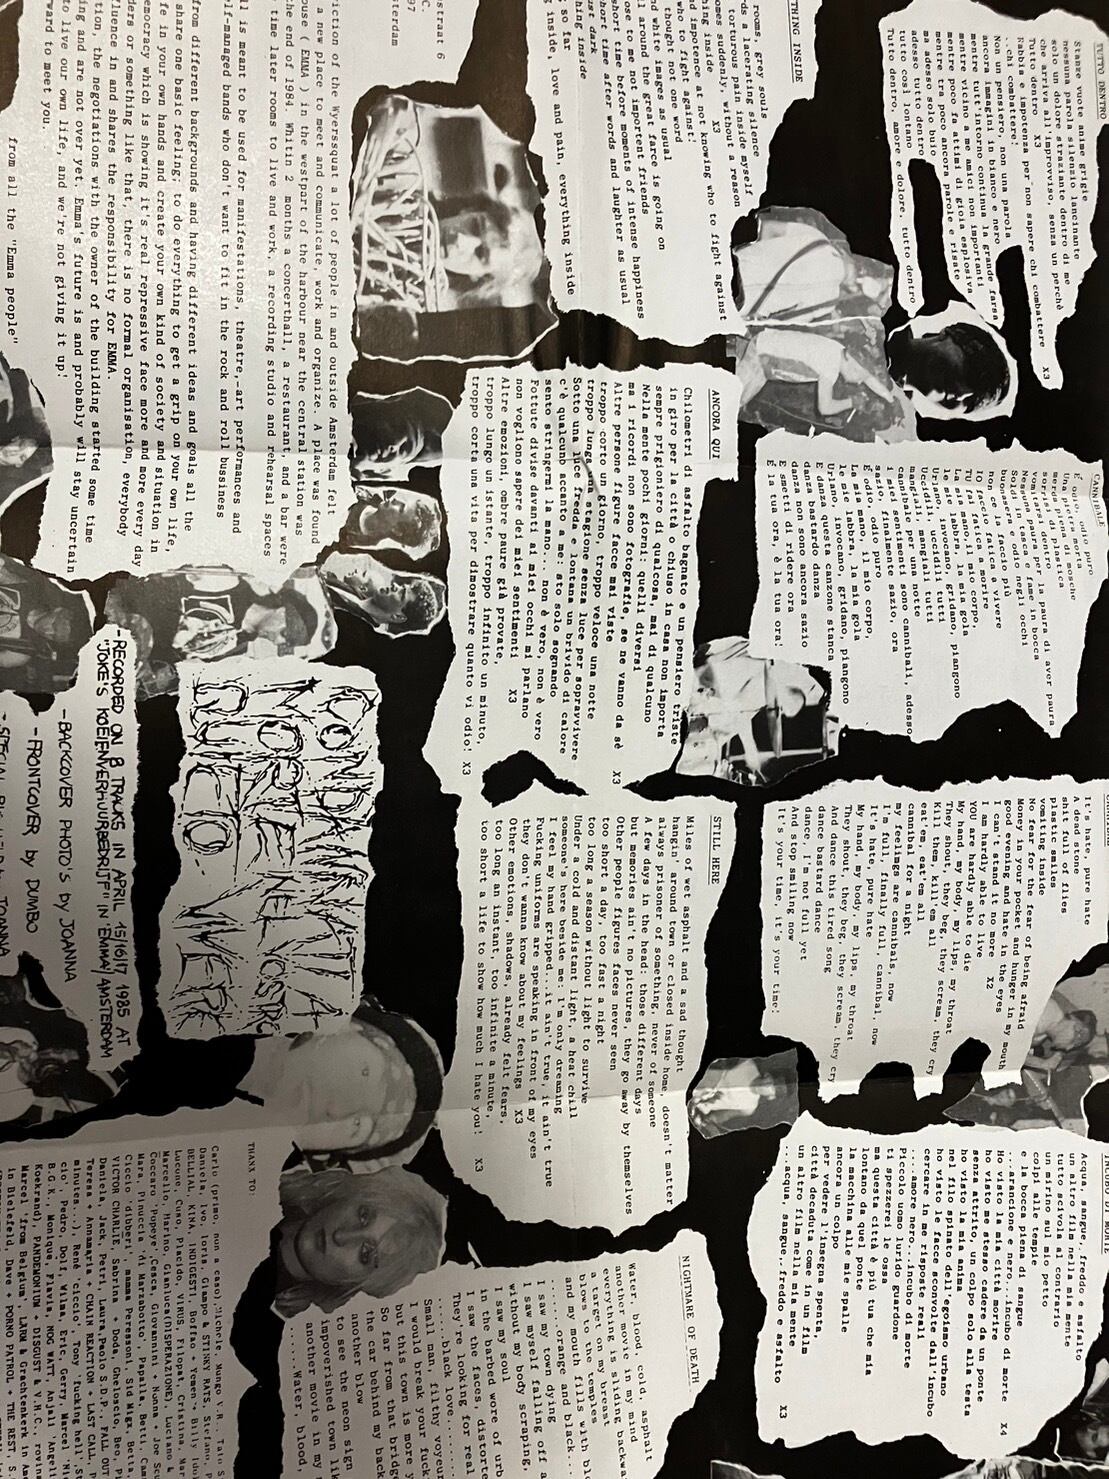 TUTTO DENTRO
Stanze vuote anime grigie
nessuna parola silenzio lancinante
solo un dolore straziante dentro di me
che arriva all'improvviso, senza un perchè
Tutto dentro X3
Rabbia e impotenza per non sapere chi combattere X3
..chi combattere!
Non un pensiero, non una parola
ancora immagini in bianco e nero
mentre tutt'intorno continua la grande farsa
mentre vicino a me amici non importanti
mentre poco fa attimi di gioia esplosiva
mentre tra poco ancora parole e risate
ma adesso solo buio
adesso tutto dentro
tutto così lontano
Tutto dentro, amore e dolore, tutto dentro
THING INSIDE
rooms, grey souls
ds a lacerating silence
torturous pain inside myself
omes suddenly, without a reason
hing inside X3
nd impotence at not knowing who to fight against
who to fight against!
thought not one word
nd white images as usual
all around the great farce is going on
ose to me not important friends
short time before moments of intense happiness
hort time after words and laughter as usual
ust dark
hing inside
so far
g inside, love and pain, everything inside
CANNIBALE
È odio, odio puro
Una pietra morta
merda piena di mosche
sorrisi di plastica
vomitarsi dentro
Nessuna paura per la paura di aver paura
Soldi in tasca e fame in bocca
buonasera e odio negli occhi
non ce la faccio più
io faccio fatica a vivere
TU fai fatica a morire
La mia mano, il mio corpo,
le mie labbra, la mia gola
Urlano, invocano, gridano, piangono
uccidili, uccidili tutti
mangiali, mangiali tutti
cannibale per una notte
i miei sentimenti sono cannibali, adesso
sazio, finalmente sazio, ora
È odio, odio puro
La mia mano, il mio corpo,
le mie labbra, la mia gola
Urlano, invocano, gridano, piangono
E danza questa canzone stanca
danza bastardo danza
danza non sono ancora sazio
E smetti di ridere ora
È la tua ora, è la tua ora!
ANCORA QUI
Chilometri di asfalto bagnato e un pensiero triste
in giro per la città o chiuso in casa non importa
sempre prigioniero di qualcosa, mai di qualcuno
Nella mente pochi giorni: quelli diversi
ma i ricordi non sono fotografie, se ne vanno da sè
Altre persone figure facce mai viste
troppo corto un giorno, troppo veloce una notte
troppo lunga una stagione senza luce per sopravvivere
Sotto una luce fredda e lontana un brivido di calore
c'è qualcuno accanto a me: sto solo sognando
sento stringermi la mano... non è vero, non è vero
Fottute divise davanti ai miei occhi mi parlano
non vogliono sapere dei miei sentimenti X3
Altre emozioni, ombre paure già provate,
troppo lungo un istante, troppo infinito un minuto,
troppo corta una vita per dimostrare quanto vi odio! X3
It's hate, pure hate
A dead stone
shit full of flies
plastic smiles
vomiting inside
No fear for the fear of being afraid
Money in your pocket and hunger in my mouth
good evening and hate in the eyes
I can't stand it no more X2
I am hardly able to live
YOU are hardly able to die
My hand, my body, my lips, my throat
They shout, they beg, they scream, they cry
Kill them, kill'em all
eat'em, eat'em all
cannibal for a night
my feelings are cannibals, now
I'm full, finally full, cannibal, now
It's hate, pure hate
My hand, my body, my lips, my throat
They shout, they beg, they scream, they cry
And dance this tired song
dance bastard dance
dance, I'm not full yet
And stop smiling now
It's your time, it's your time!
STILL HERE
Miles of wet asphalt and a sad thought
hangin' around town or closed inside home, doesn't matter
always prisoner of something, never of someone
A few days in the head: those different days
but memories ain't no pictures, they go away by themselves
Other people figures faces never seen
too short a day, too fast a night
too long a season without light to survive
Under a cold and distant light, a heat chill
someone's here beside me: I'm only dreaming
I feel my hand gripped...it ain't true, it ain't true
Fucking uniforms are speaking in front of my eyes
they don't wanna know about my feelings X3
Other emotions, shadows, already felt fears,
too long an instant, too infinite a minute,
too short a life to show how much I hate you! X3
INCUBO DI MORTE
Acqua, sangue,.freddo e asfalto
un altro film nella mia mente
tutto scivola al contrario
un mirino sul mio petto
colpi alle tempie
e la bocca piena di sangue
...arancione e nero...incubo di morte X4
Ho visto la mia città morire
ho visto me stesso cadere da un ponte
senza attrito, un colpo solo alla testa
ho visto la mia anima
nel filo spinato dell'egoismo urbano
ho visto le facce sconvolte dall'incubo
cercare in me risposte reali
....amore nero...incubo di morte
Piccolo uomo lurido guardone
ti spezzerei le ossa
ma questa città è più tua che mia
lontano da quel ponte
la macchina alle mie spalle
ancora un colpo
per vedere l'insegna spenta,
città decaduta come in un film
un altro film nella mia mente
...acqua, sangue,.freddo e asfalto X3
NIGHTMARE OF DEATH
Water, blood, cold, asphalt
another movie in my mind
everything is sliding backwa
a target on my breast
blows to the temples
and my mouth fills with blo
.....orange and black...
I saw my town dying
I saw myself falling off a
without my body scraping,
I saw my soul
in the barbed wore of urb
I saw the faces, distorte
They're looking for real
.....black love........
Small man, filthy voyeur
I would break your fuck
but this town is more y
So far from that bridge
the car behind my back
another blow
to see the neon sign
impoverished town lik
another movie in my
......Water, blood,
straat 6
C.
sterdam
iction of the Wyerssquat a lot of people in and outside Amsterdam felt
a new place to meet and communicate, work and organize. A place was found
ouse ( EMMA ) in the westpart of the harbour near the central station was
the end of 1984. Whitin 2 months a concerthall, a restaurant, and a bar were
time later rooms to live and work, a recording studio and rehearsal spaces
l is meant to be used for manifestations, theatre,-art performances and
lf-managed bands who don't want to fit in the rock and roll business
from different backgrounds and having different ideas and goals all the
share one basic feeling; to do everything to get a grip on your own life,
fe in your own hands and create your own kind of society and situation in
emocracy which is showing it's real repressive face more and more every day
ders or something like that, there is no formal organisation, everybody
fluence in and shares the responsibility for EMMA.
tion, the negotiations with the owner of the building started some time
ing and are not over yet. Emma's future is and probably will stay uncertain
to live our own life, and we're not giving it up!
ward to meet you.
from all the "Emma people"
-RECORDED ON 8 TRACKS IN APRIL 15/16/17 1985 AT
"JOKE'S KOEIENVERHUURBEDRIJF" IN "EMMA"/AMSTERDAM
-BACKCOVER PHOTO'S by JOANNA
-FRONTCOVER by DUMBO
THANX TO:
Carlo (primo, non a caso),Michele, Mungo V.R., Talo S
Daniela, Ivo, Ioris, Giampo & STINKY RATS, Stefano, P
BELLIAL, KINA, INDIGESTI, Boffao + Yemen + Billy
Lucano, Cuso, Placido, VIRUS, Filopat, Cristina, Mar
Marcello, Marino, Gianluca(DISPERAZIONE), Luciano &
Coccaro 'Popeye' Cesca, Giovannici + Nunna + Joe Scu
Mara, Pinucci 'di Marzabotto, Papalla, Betti, Cam
Ciccio 'dibberi', mamma Peressoni, Sid Migx, Betta,
VICTOR CHARLIE, Sabrina + Doda, Gheloscio, Beo, Pi
Daniela, Jack, Petri, Laura,Paolo S.D.P., FALL OUT
Teresa + Annamaria + CHAIN REACTION + LAST CALL, P
minutes...), René 'ciccio', Tony 'fucking hell',
cio', Pedro, Dolf, Wilma, Eric, Gerry, Marcel
B.G.K., Monique, Flavia, HOC WATT, Anjali 'Angel
Koekrand), PANDEMONIUM + DISGUST & V.H.C., rovin
Marcel 'from Belgium', LARM & Grachtenkerk in Am
in Bielefeld, Dave + PORNO PATROL + THE REST